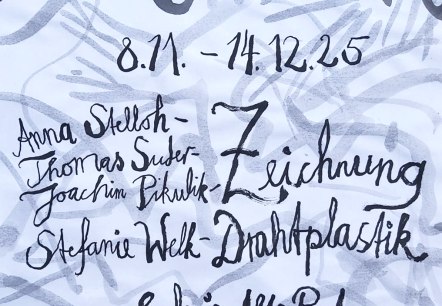 8.11. - 14.12.25
Anna Stelloh -
Thomas Suter -
Joachim Pikulik - Zeichnung
Stefanie Welk - Drahtplastik